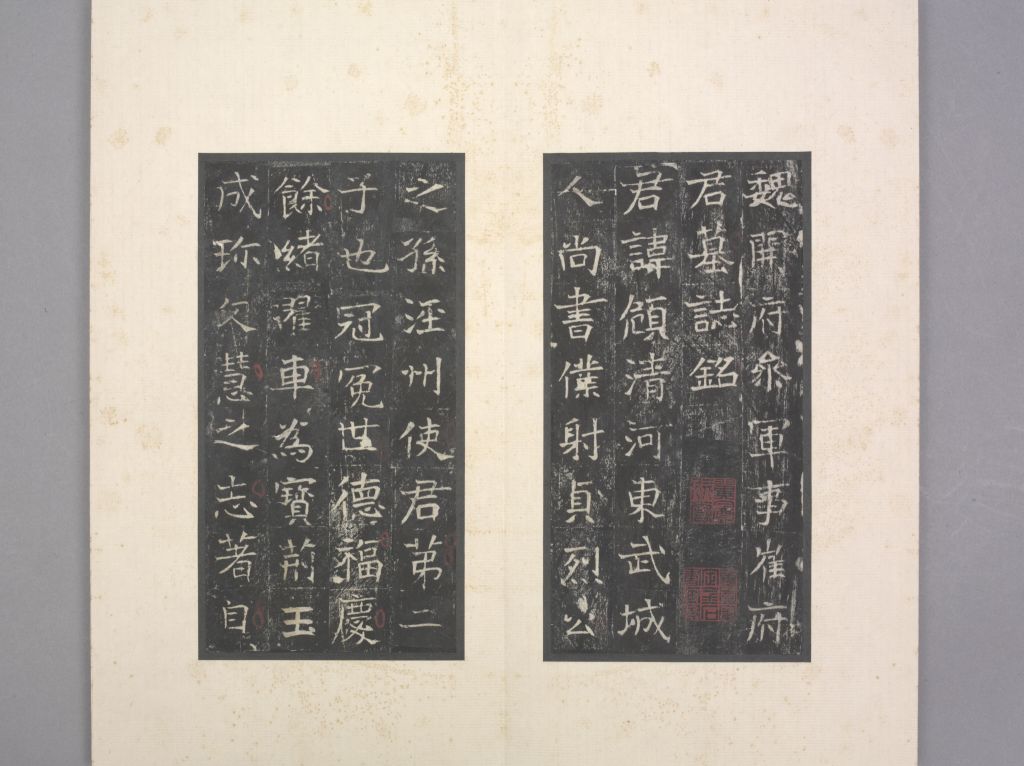 魏開府參軍事崔府
君墓誌銘
君諱頠清河東武城
人尚書僕射貞烈公
之孫涇州使君第二
子也冠冕世德福慶
餘緒濯車為寶荊玉
成珎久慧之志著自